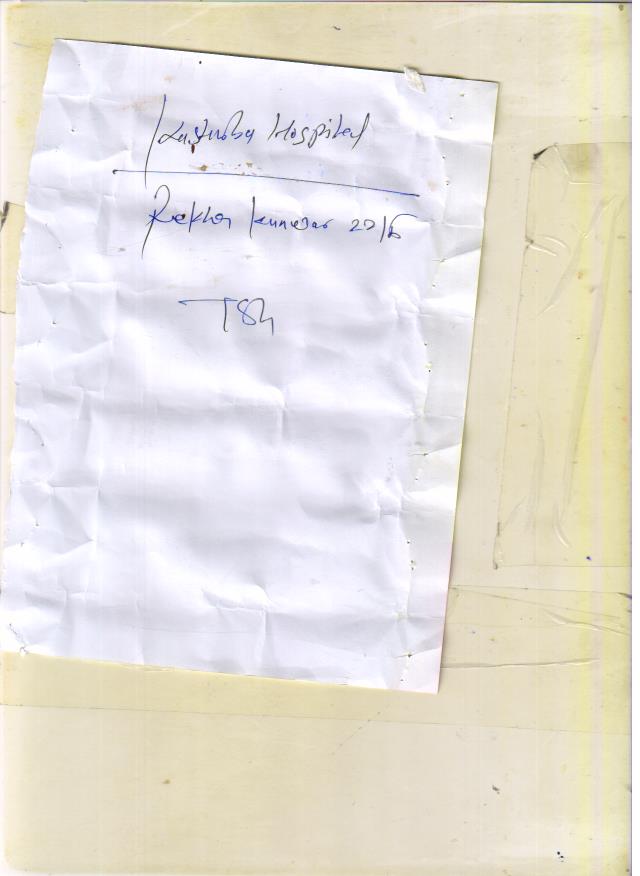 Kasturba Hospital
Rekha Kunwar 22/F
TSH